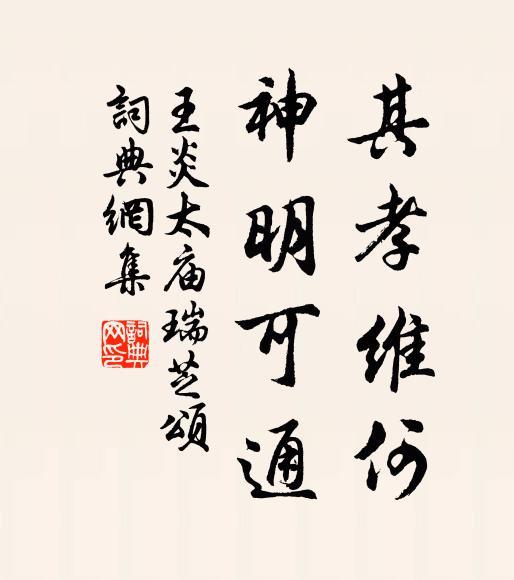 其孝維何
神明可通
王炎太庙瑞芝頌
詞典網集
詞典网印